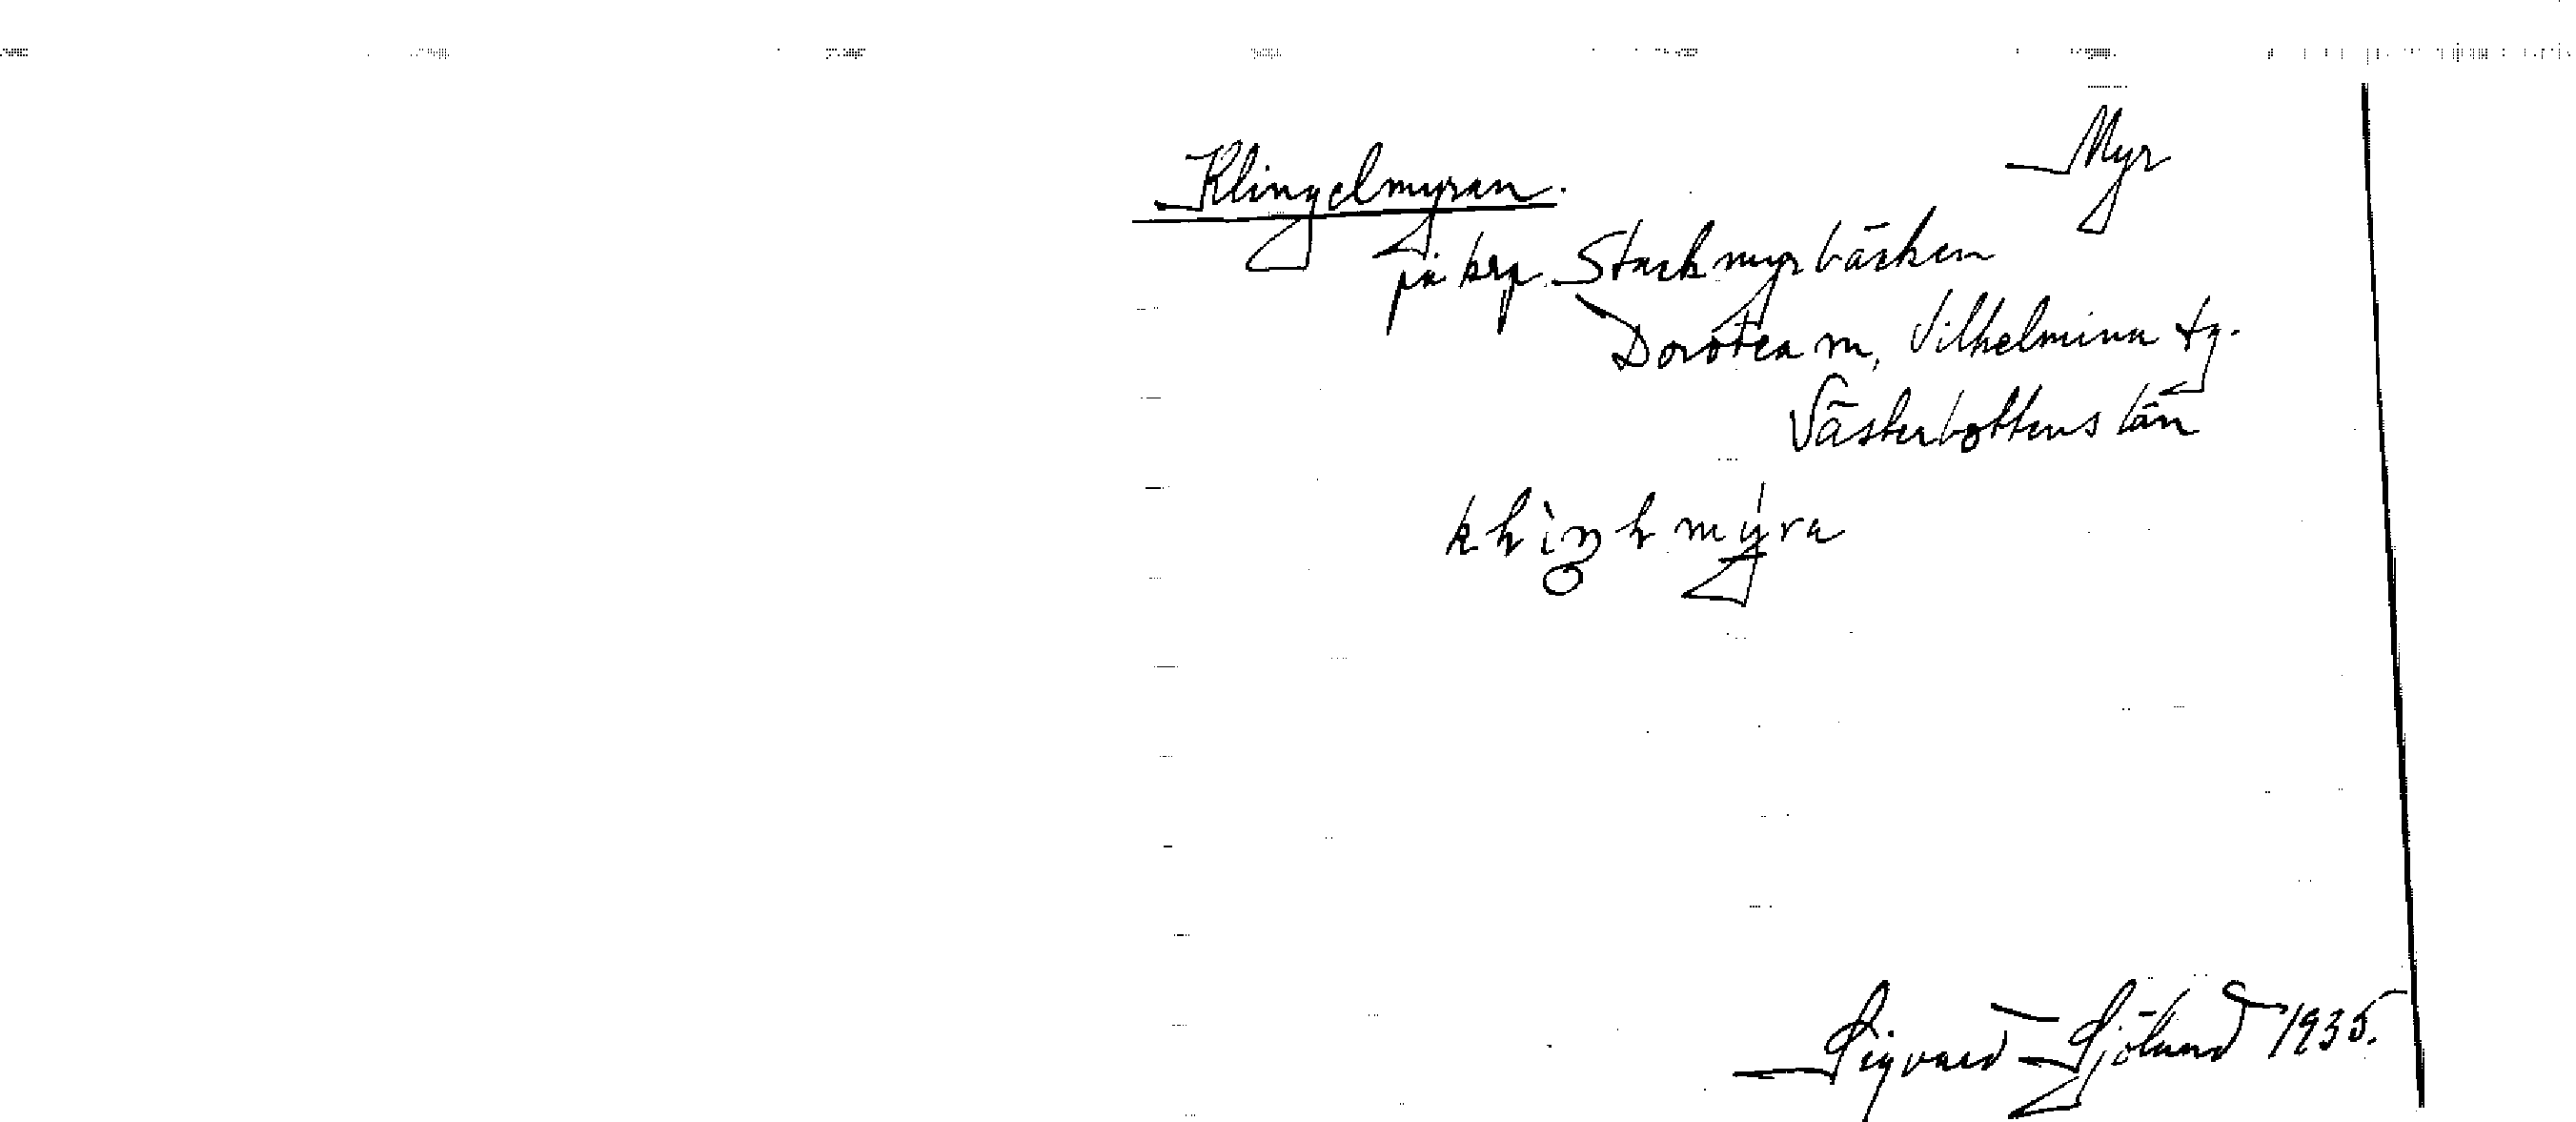 Klingelmyran.
Myr
på krp. Stackmyrbäcken
Dorotea m, Vilhelmina tg.
Västerbottens län
Sigvard Sjölund 1935.